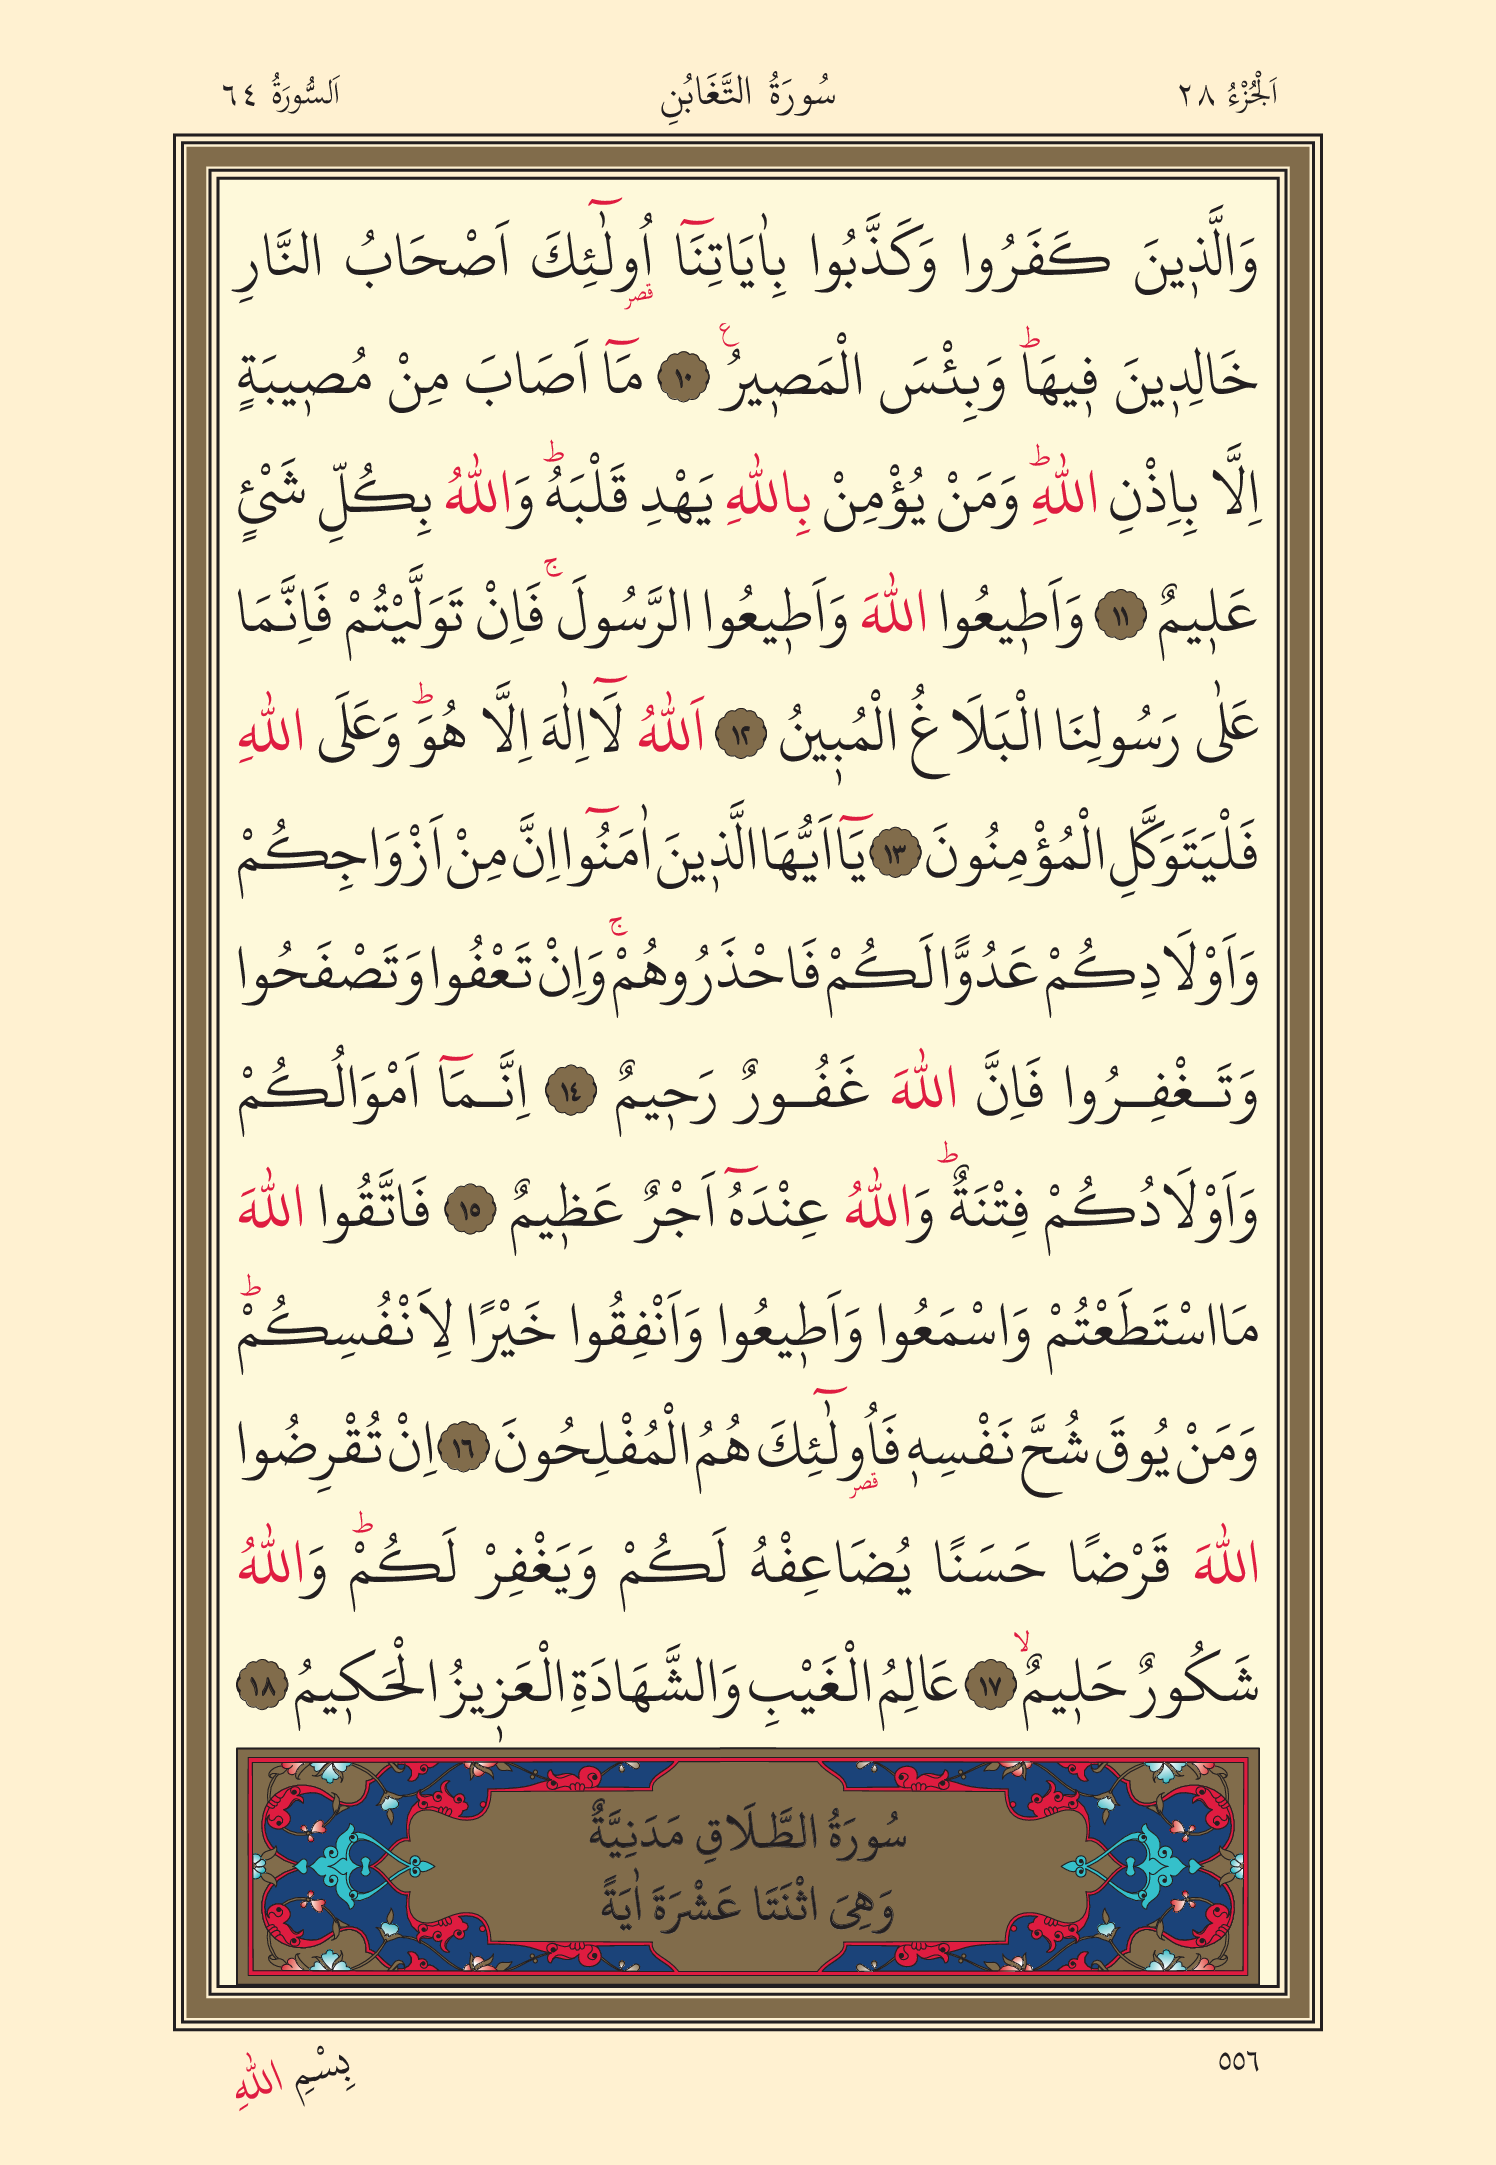 اَلْجُزْءُ ٢٨
سُورَةُ التَّغَابُنِ
اَلسُّورَةُ ٦٤
وَالَّذ۪ينَ كَفَرُوا وَكَذَّبُوا بِاٰيَاتِنَٓا اُو۬لٰٓئِكَ اَصْحَابُ النَّارِ
قصر
خَالِد۪ينَ ف۪يهَاۜ وَبِئْسَ الْمَص۪يرُ۟ ١٠ مَٓا اَصَابَ مِنْ مُص۪يبَةٍ
اِلَّا بِاِذْنِ اللّٰهِۜ وَمَنْ يُؤْمِنْ بِاللّٰهِ يَهْدِ قَلْبَهُۜ وَاللّٰهُ بِكُلِّ شَيْءٍ
عَل۪يمٌ ١١ وَاَط۪يعُوا اللّٰهَ وَاَط۪يعُوا الرَّسُولَۚ فَاِنْ تَوَلَّيْتُمْ فَاِنَّمَا
عَلٰى رَسُولِنَا الْبَلَاغُ الْمُب۪ينُ ١٢ اَللّٰهُ لَٓا اِلٰهَ اِلَّا هُوَۜ وَعَلَى اللّٰهِ
فَلْيَتَوَكَّلِ الْمُؤْمِنُونَ ١٣ يَٓا اَيُّهَا الَّذ۪ينَ اٰمَنُٓوا اِنَّ مِنْ اَزْوَاجِكُمْ
وَاَوْلَادِكُمْ عَدُوًّا لَكُمْ فَاحْذَرُوهُمْۚ وَاِنْ تَعْفُوا وَتَصْفَحُوا
وَتَغْفِرُوا فَاِنَّ اللّٰهَ غَفُورٌ رَح۪يمٌ ١٤ اِنَّمَٓا اَمْوَالُكُمْ
وَاَوْلَادُكُمْ فِتْنَةٌۜ وَاللّٰهُ عِنْدَهُٓ اَجْرٌ عَظ۪يمٌ ١٥ فَاتَّقُوا اللّٰهَ
مَا اسْتَطَعْتُمْ وَاسْمَعُوا وَاَط۪يعُوا وَاَنْفِقُوا خَيْرًا لِاَنْفُسِكُمْۜ
وَمَنْ يُوقَ شُحَّ نَفْسِه۪ فَاُو۬لٰٓئِكَ هُمُ الْمُفْلِحُونَ ١٦ اِنْ تُقْرِضُوا
قصر
اللّٰهَ قَرْضًا حَسَنًا يُضَاعِفْهُ لَكُمْ وَيَغْفِرْ لَكُمْۜ وَاللّٰهُ
شَكُورٌ حَل۪يمٌۙ ١٧ عَالِمُ الْغَيْبِ وَالشَّهَادَةِ الْعَز۪يزُ الْحَك۪يمُ ١٨
سُورَةُ الطَّلَاقِ مَدَنِيَّةٌ
وَهِيَ اثْنَتَا عَشْرَةَ اٰيَةً
٥٥٦
بِسْمِ اللّٰهِ